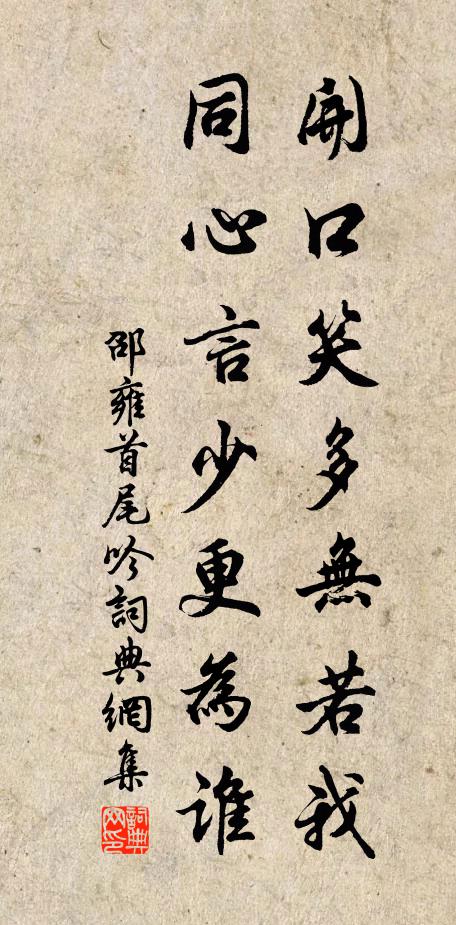 開口笑多無若我
同心言少更為誰
邵雍首尾吟詞典網集
詞典
网印